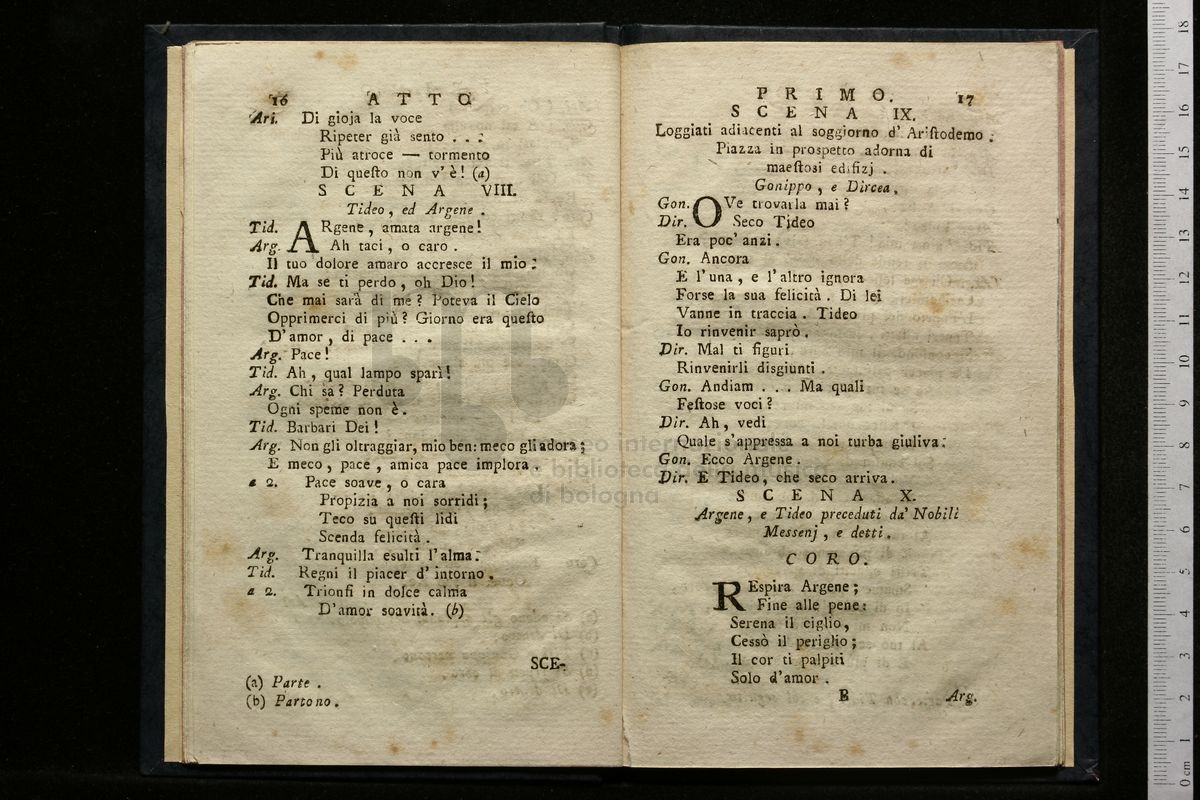 16 ATTO
Ari. Di gioja la voce
Ripeter già sento . . .
Più atroce — tormento
Di queſto non v' è! (a)
SCENA VIII.
Tideo, ed Argene.
Tid. ARgene, amata argene!
Arg. Ah taci, o caro.
Il tuo dolore amaro accresce il mio:
Tid. Ma se ti perdo, oh Dio!
Che mai sarà di me? Poteva il Cielo
Opprimerci di più? Giorno era queſto
D'amor, di pace . . .
Arg. Pace!
Tid. Ah, qual lampo sparì!
Arg. Chi sa? Perduta
Ogni speme non è.
Tid. Barbari Dei!
Arg. Non gli oltraggiar, mio ben: meco gli adora;
E meco, pace, amica pace implora.
a 2. Pace soave, o cara
Propizia a noi sorridi;
Teco su queſti lidi
Scenda felicità.
Arg. Tranquilla esulti l'alma:
Tid. Regni il piacer d'intorno.
a 2. Trionfi in dolce calma
D'amor soavità. (b)
SCE-
(a) Parte.
(b) Partono.
PRIMO. 17
SCENA IX.
Loggiati adiacenti al soggiorno d' Ariſtodemo.
Piazza in prospetto adorna di
maeſtosi edifizj.
Gonippo, e Dircea.
Gon. OVe trovarla mai?
Dir. Seco Tideo
Era poc' anzi.
Gon. Ancora
E l'una, e l'altro ignora
Forse la sua felicità. Di lei
Vanne in traccia. Tideo
Io rinvenir saprò.
Dir. Mal ti figuri
Rinvenirli disgiunti.
Gon. Andiam . . . Ma quali
Feſtose voci?
Dir. Ah, vedi
Quale s'appressa a noi turba giuliva:
Gon. Ecco Argene.
Dir. E Tideo, che seco arriva.
SCENA X.
Argene, e Tideo preceduti da' Nobili
Messenj, e detti.
CORO.
REspira Argene;
Fine alle pene:
Serena il ciglio,
Cessò il periglio;
Il cor ti palpiti
Solo d'amor.
B Arg.
museo internazionale
e biblioteca della musica
di bologna
0 cm 1 2 3 4 5 6 7 8 9 10 11 12 13 14 15 16 17 18